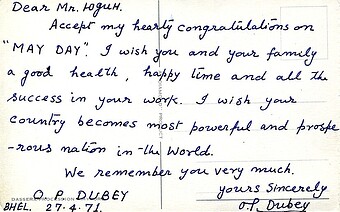 Dear Mr. Loguh.
Accept my hearty congratulations on
"MAY DAY". I wish you and your family
a good health, happy time and all the
success in your work. I wish your
country becomes most powerful and prospe
-rous nation in the World.
We remember you very much.
yours Sincerely
O. P. DUBEY
O.P. Dubey
BHEL. 27.4.71.